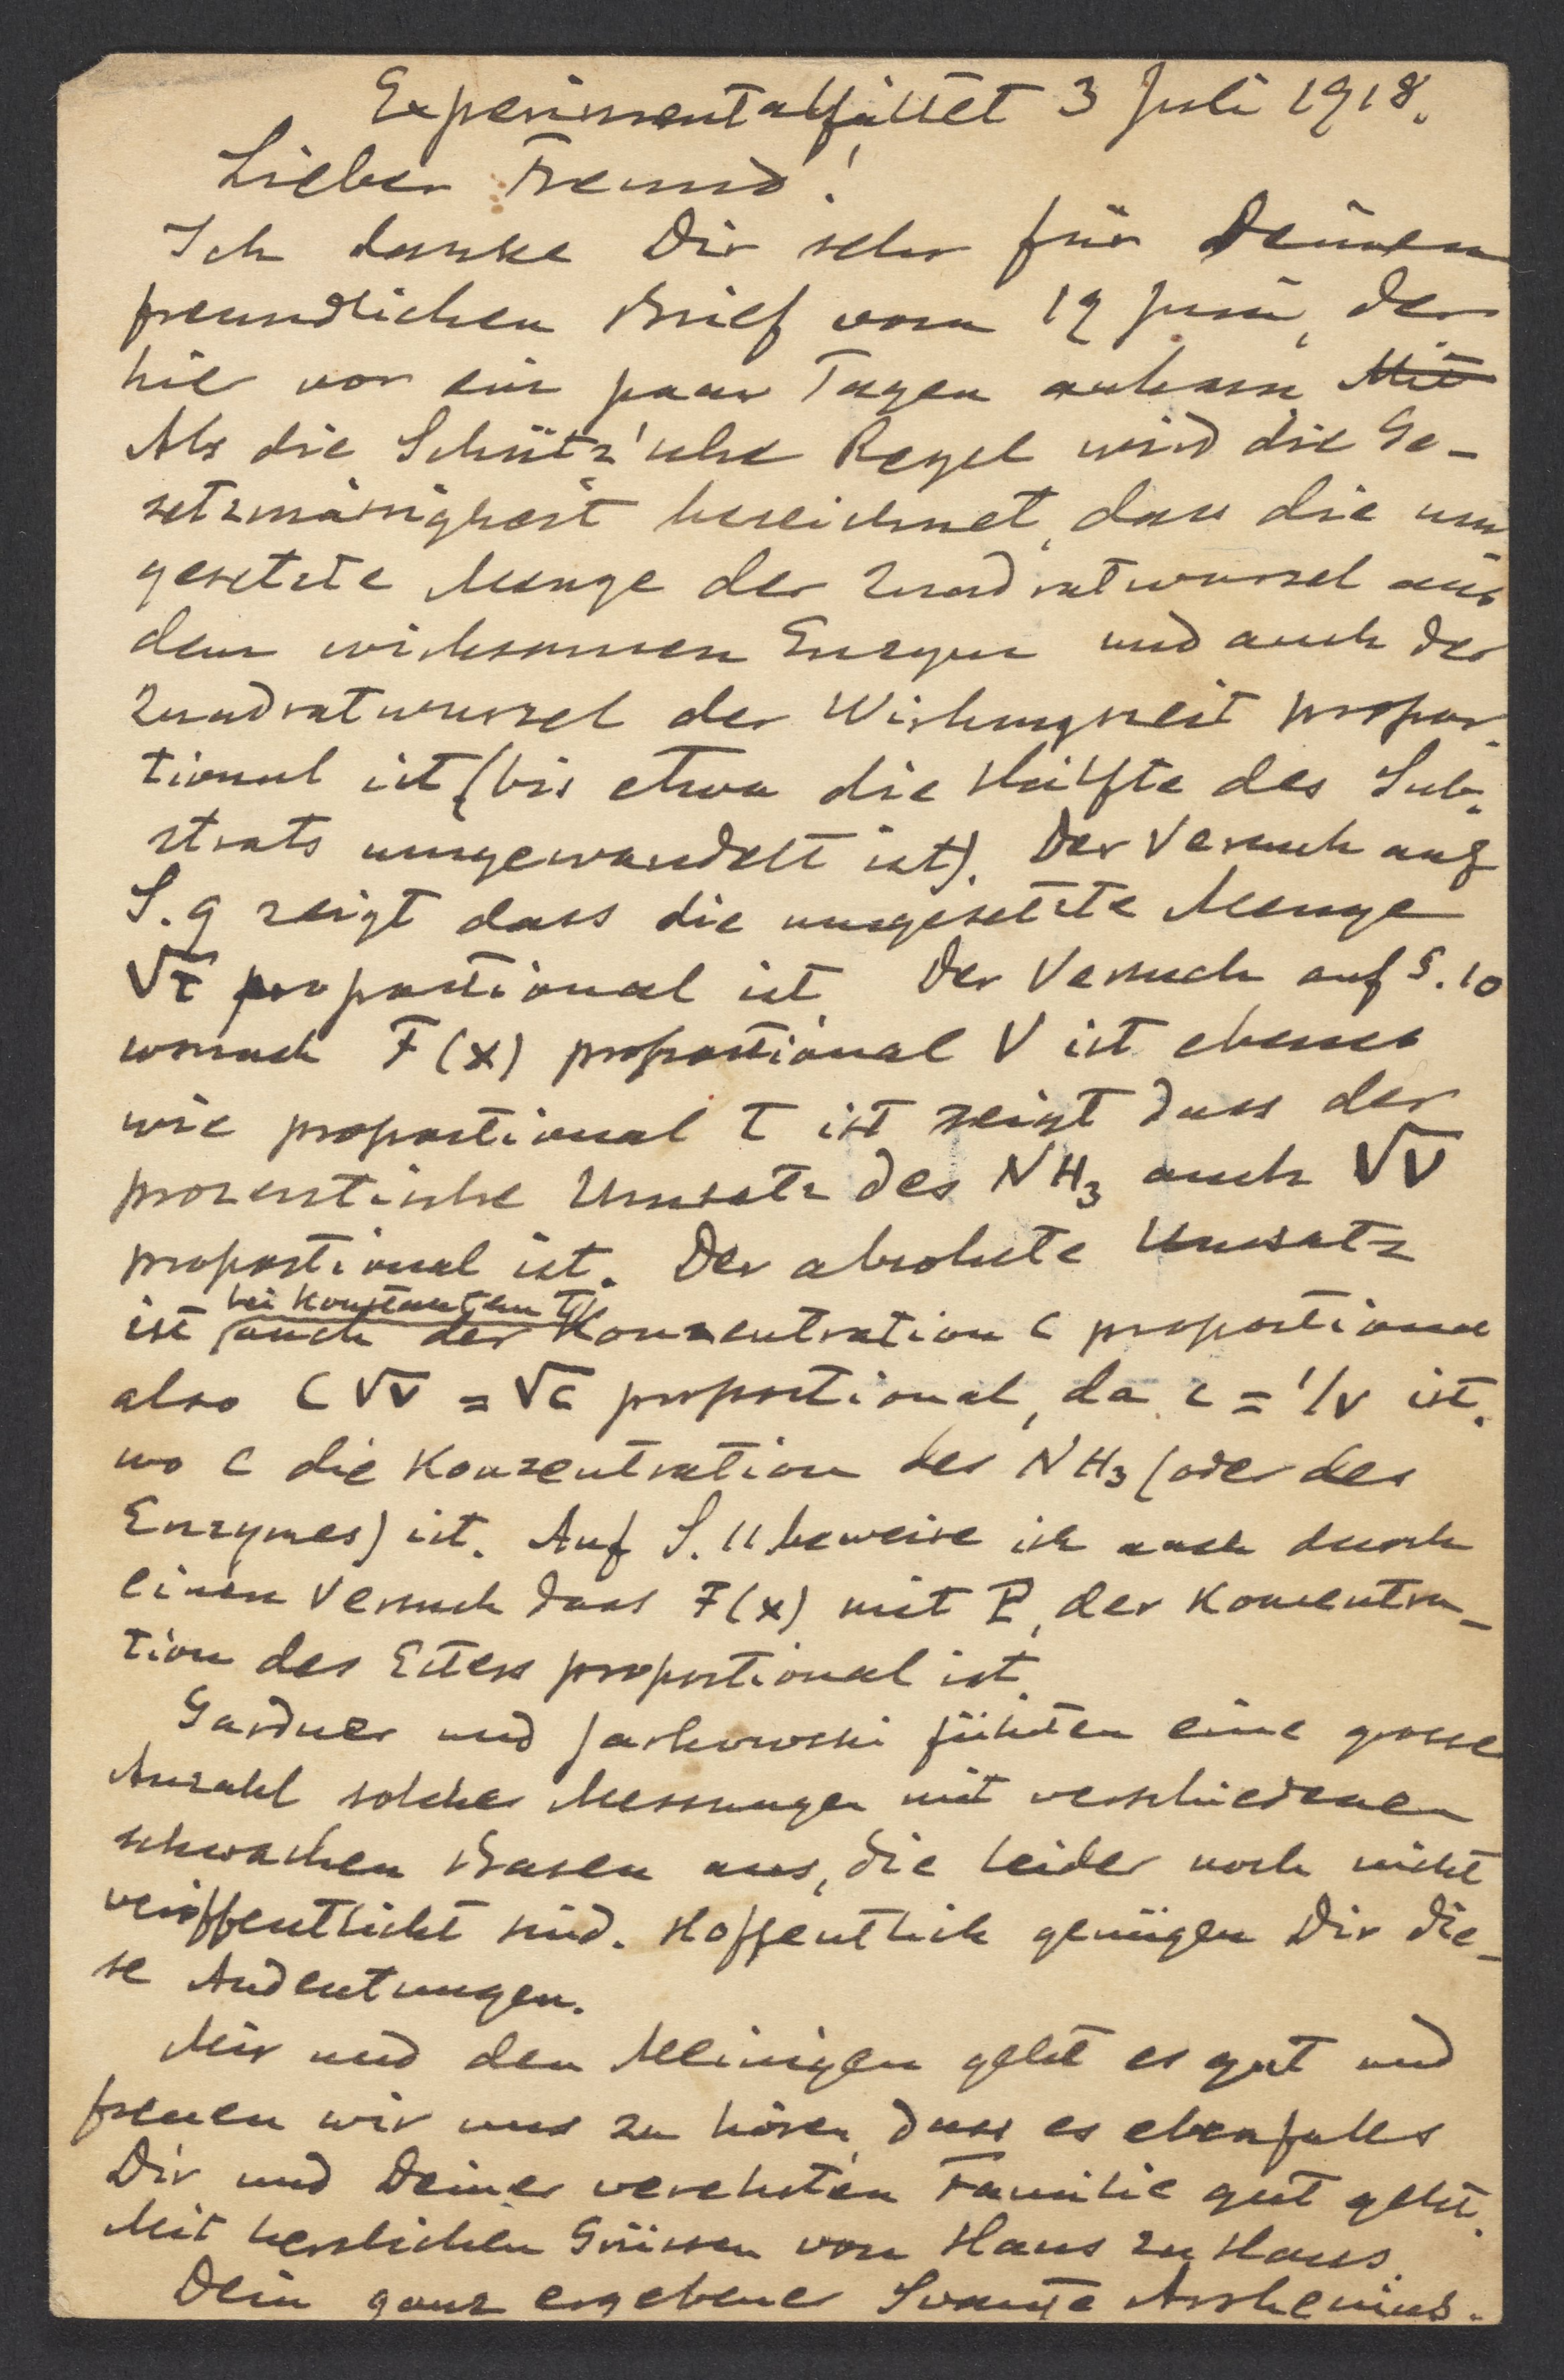 Experimentalfältet 3 Juli 1918.
Lieber Freund!
Ich danke Dir sehr für Deinen
freundlichen Brief vom 19 Juni, der
hie vor ein paar Tagen ankam. Mit
Als die Schütz'sche Regel wird die Ge-
setzmässigkeit bezeichnet, dass die um
gesetzte Menge der Quadratwurzel aus
dem wirksamen Enzym und auch der
Quadratwurzel der Wirkungszeit propor-
tional ist (bis etwa die Hälfte des Sub-
strats umgewandelt ist). Der Versuch auf
S. 9 zeigt dass die umgesetzte Menge
√t proportional ist. Der Versuch auf S. 10
wonach F(x) proportional V ist ebenso
wie proportional t ist zeigt dass der
prozentische Umsatz des NH3 auch √V
proportional ist. Der absolute Umsatz
bei konstantem T
ist auch der Konzentration C proportional
also C√V = √C proportional, da c = 1/V ist.
wo C die Konzentration des NH3 (oder des
Enzymes) ist. Auf S. 11 beweise ich auch durch
einen Versuch dass F(x) mit E, der Konzentra-
tion des Esters proportional ist.
Gardner und Jarkowski führten eine grosse
Anzahl solcher Messungen mit verschiedenen
schwachen Basen aus, die leider noch nicht
veröffentlicht sind. Hoffentlich genügen Dir die-
se Andeutungen.
Mir und den Meinigen geht es gut und
freuen wir uns zu hören dass es ebenfalls
Dir und Deiner verehrten Familie gut geht.
Mit herzlichen Grüssen von Haus zu Haus.
Dein ganz ergebener Svante Arrhenius.